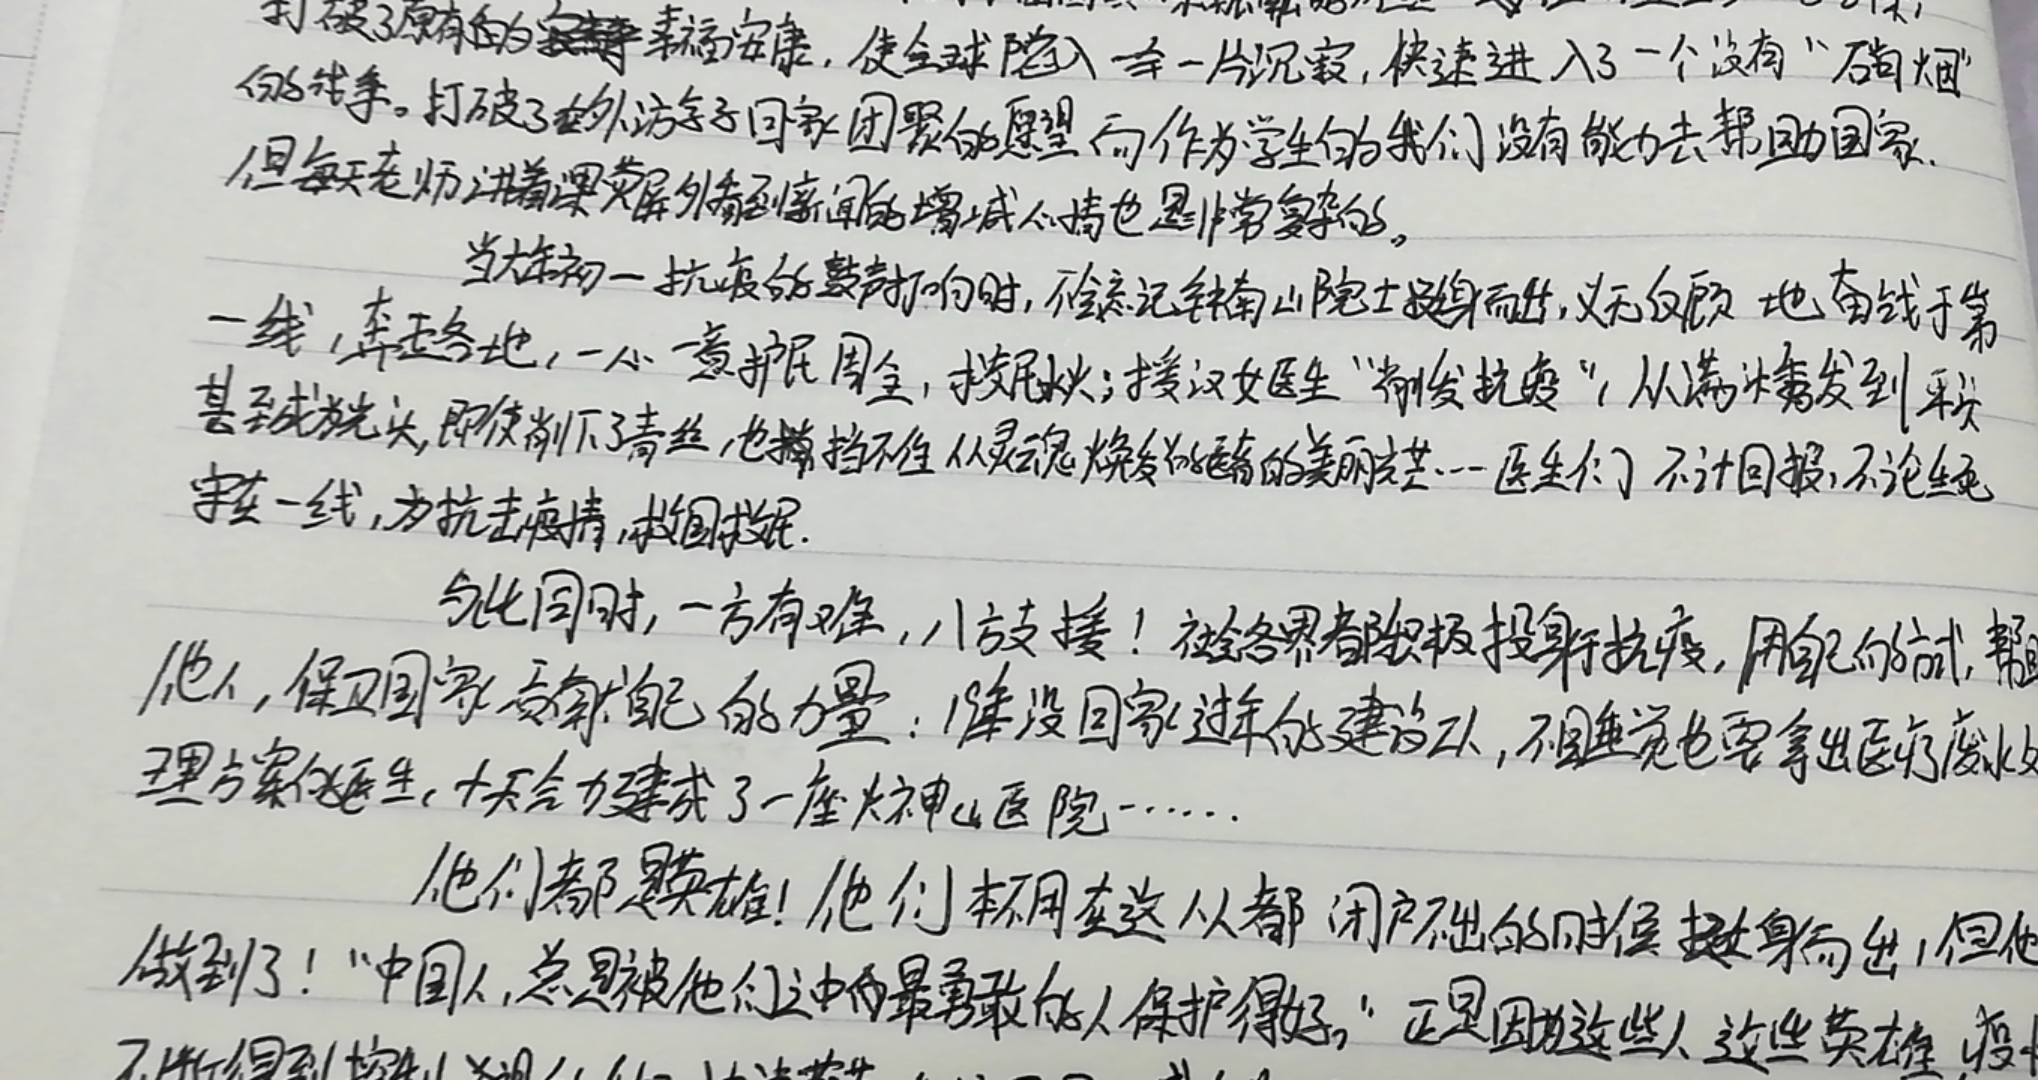 打破了原有的幸福安康，使全球陷入一片沉寂，快速进入了一个没有“硝烟”
的战争。打破了在外游子回家团聚的愿望而作为学生的我们没有能力去帮助国家.
但每天老师讲着课荧屏外看到新闻的增减心情也是非常复杂的。
当大年初一抗疫的鼓声打响时，不会忘记钟南山院士挺身而出，义无反顾地奋战于第
一线，奔走各地，一心一意护民周全，救民水火；援汉女医生“削发抗疫”，从满头秀发到平头
甚至成为光头，即使削下了青丝，也挡不住从灵魂焕发的美丽光芒……医生们不计回报，不论生死
守在一线，为抗击疫情，救国救民.
与此同时，一方有难，八方支援！社会各界都积极投身于抗疫，用自己的方式，帮助
他人，保卫国家贡献自己的力量：没回家过年的建设队，不睡觉也要拿出医疗废水处
理方案的医生，十天合力建成了一座火神山医院……
他们都是英雄！他们本不用在这人人都闭户不出的时候挺身而出，但他
做到了！“中国人，总是被他们之中的最勇敢的人保护得好。”正是因为这些人这些英雄，疫
不断得到控制